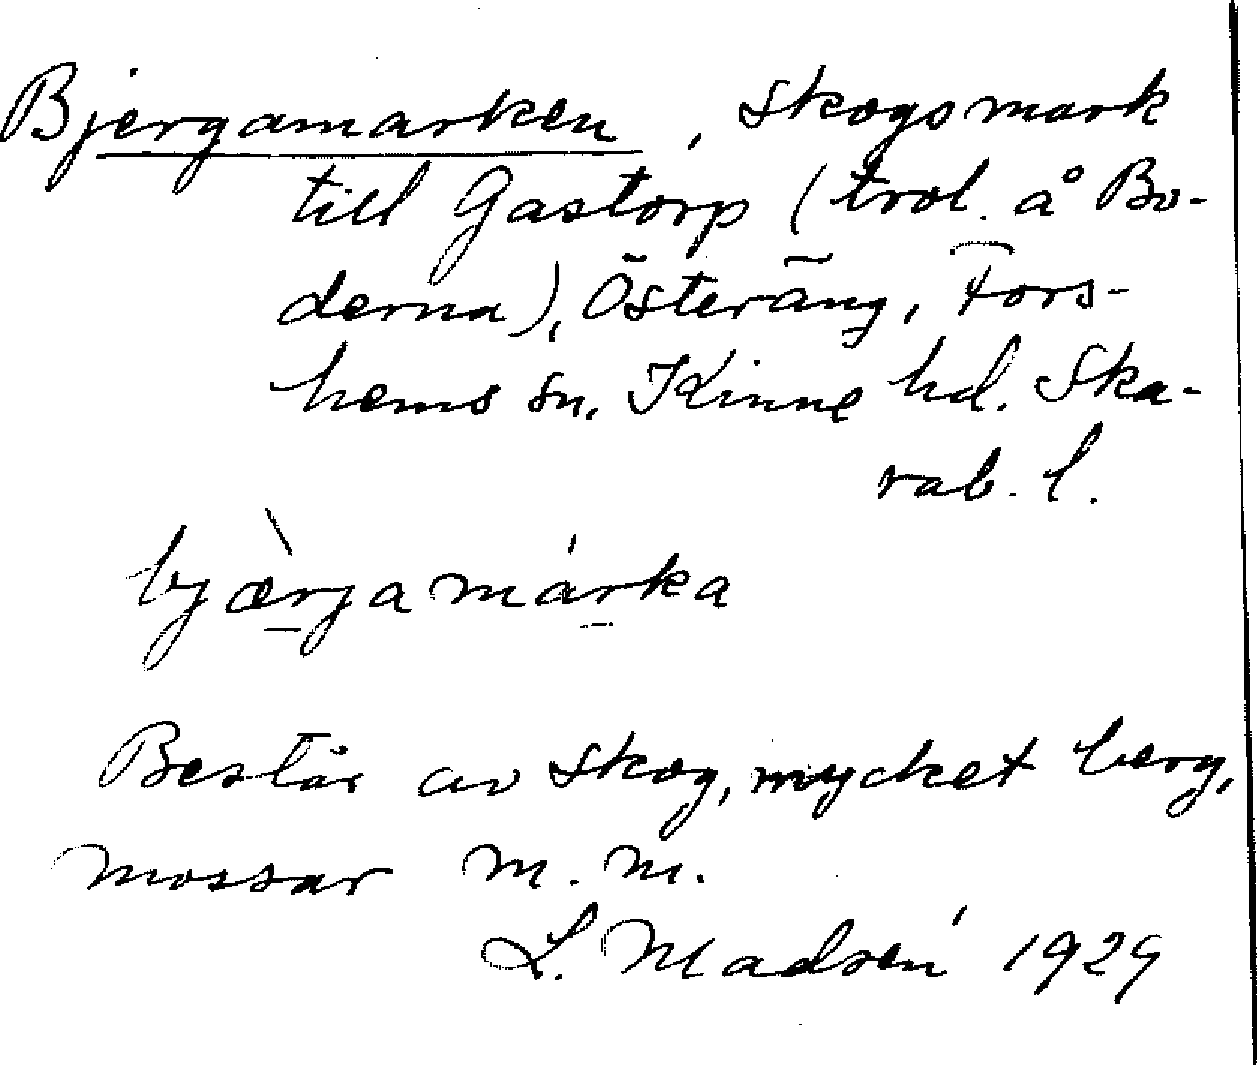 Bjergamarken, skogsmark
till Gastorp (trol. å Bo-
derna), Österäng, Fors-
hems sn, Kinne hd. Ska-
rab. l.
bjæ̀rjamárka
Består av skog, mycket berg,
mossar m. m.
L. Madsén 1929